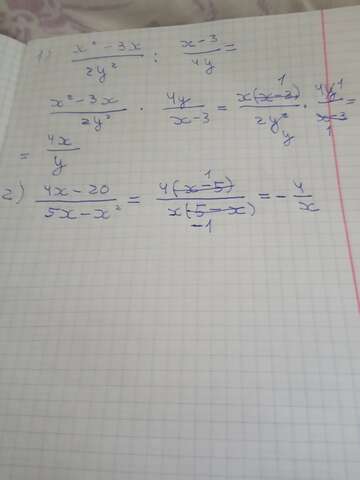 1) (x² - 3x)/(2y²) : (x-3)/(4y) =
(x² - 3x)/(2y²) · (4y)/(x-3) = (x(x-3) 1)/(2y² y) · (4y 1)/(x-3 1) =
= 4x/y
2) (4x - 20)/(5x - x²) = (4(x-5) 1)/(x(5-x) -1) = - 4/x